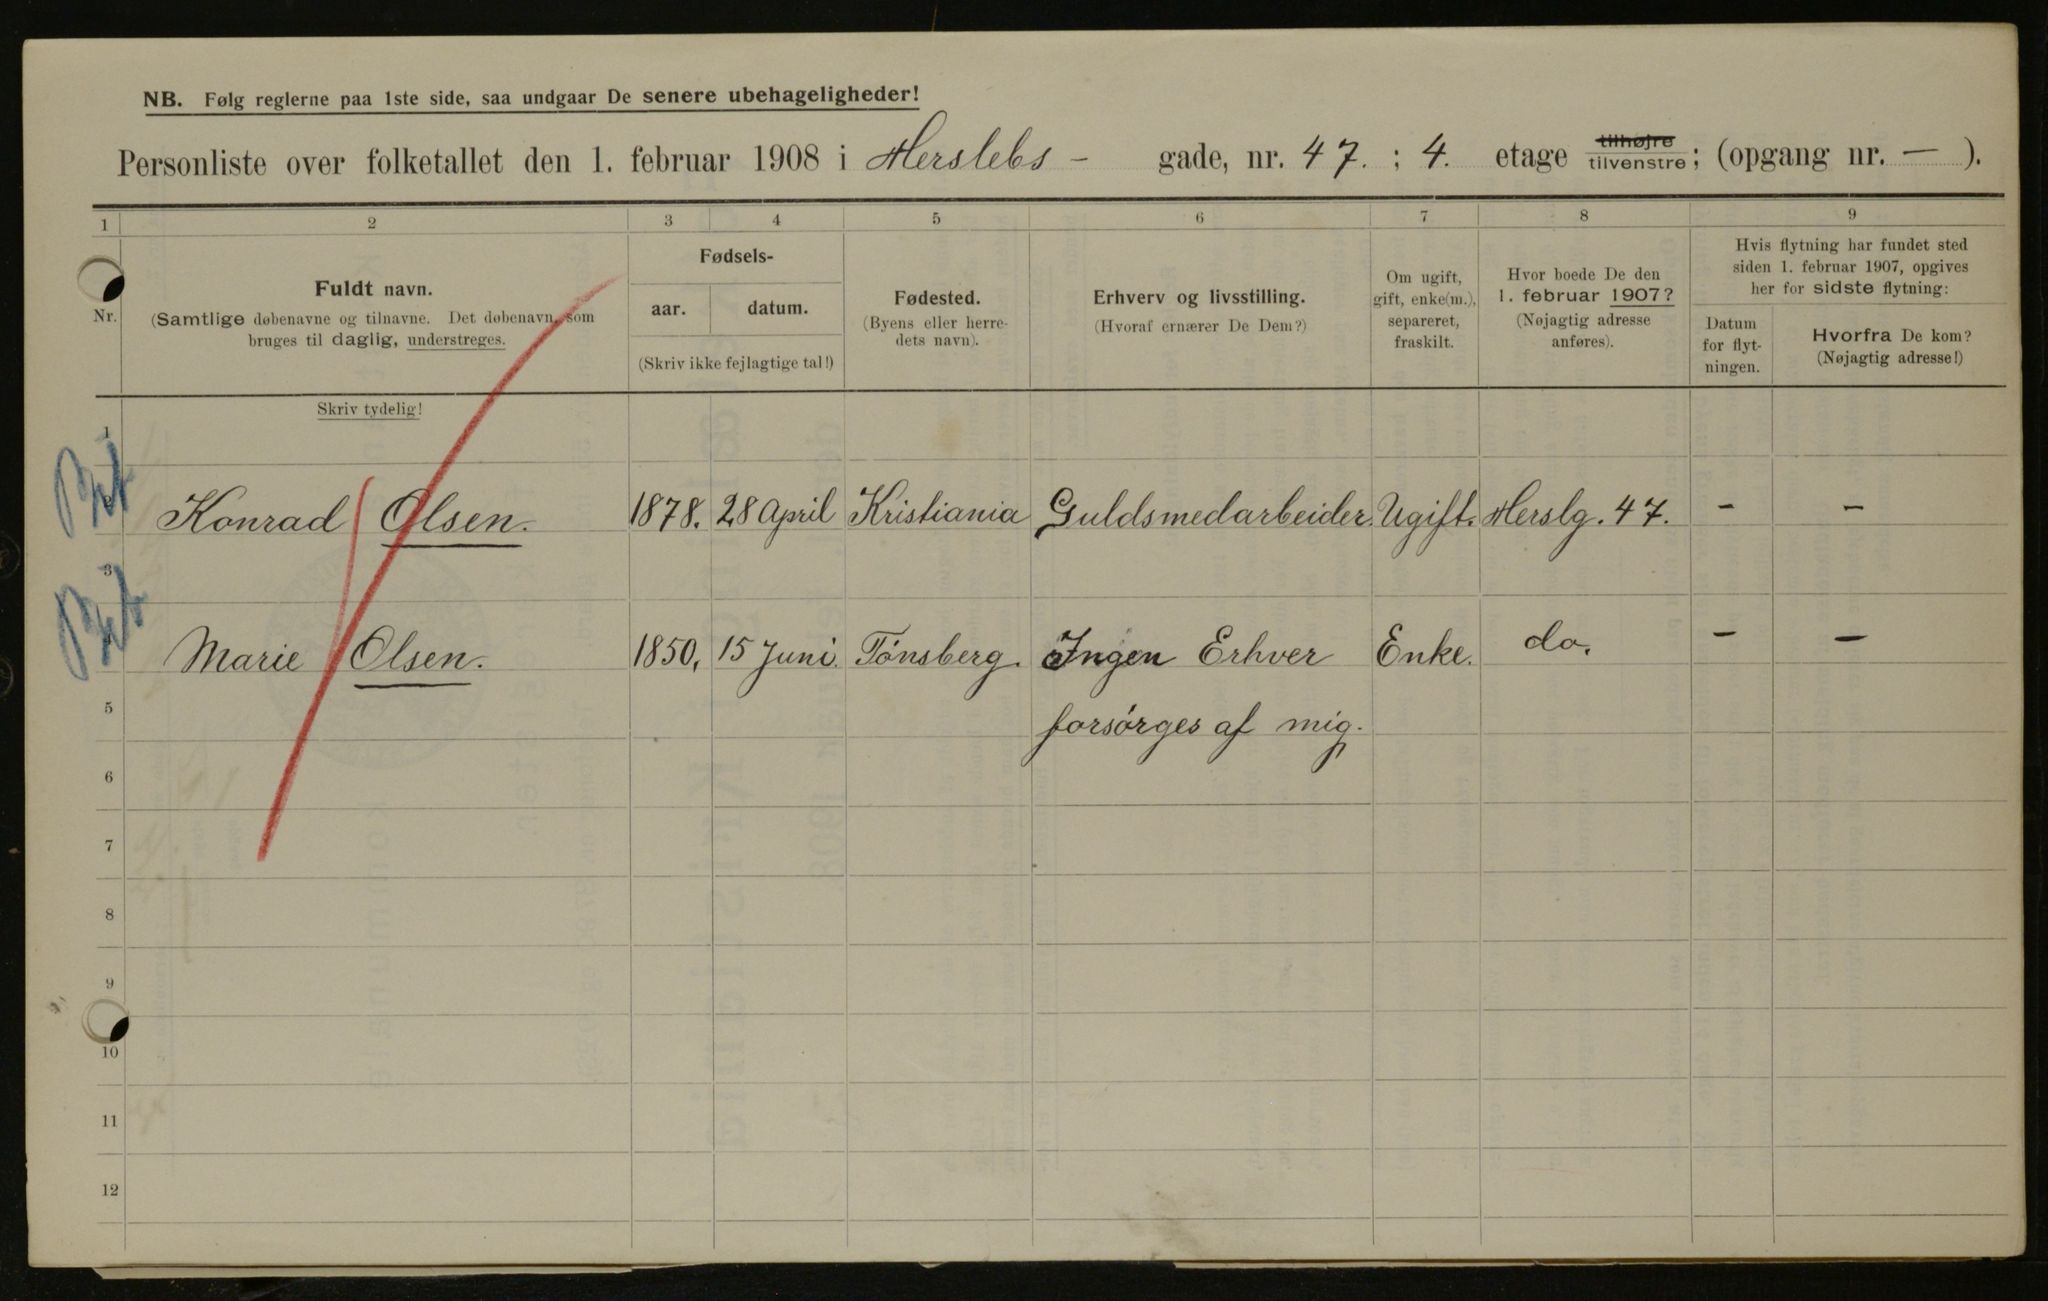 NB. Følg reglerne paa 1ste side, saa undgaar De senere ubehageligheder!
Personliste over folketallet den 1. februar 1908 i Herslebs - gade, nr. 47. ; 4. etage tilhøjre tilvenstre; (opgang nr. — ).
1 2 3 4 5 6 7 8 9
Nr.
Fuldt navn.
(Samtlige døbenavne og tilnavne. Det døbenavn, som
bruges til daglig, understreges.
Fødsels-
aar. datum.
(Skriv ikke fejlagtige tal!)
Fødested.
(Byens eller herre-
dets navn).
Erhverv og livsstilling.
(Hvoraf ernærer De Dem?)
Om ugift,
gift, enke(m.),
separeret,
fraskilt.
Hvor boede De den
1. februar 1907?
(Nøjagtig adresse
anføres).
Hvis flytning har fundet sted
siden 1. februar 1907, opgives
her for sidste flytning:
Datum
for flyt-
ningen.
Hvorfra De kom?
(Nøjagtig adresse!)
Skriv tydelig!
1
2 Konrad Olsen. 1878. 28 April Kristiania Guldsmedarbeider. Ugift. Herslg. 47. - -
3
4 Marie Olsen. 1850, 15 Juni. Tönsberg. Ingen Erhver Enke. do. - -
5 forsörges af mig.
6
7
8
9
10
11
12